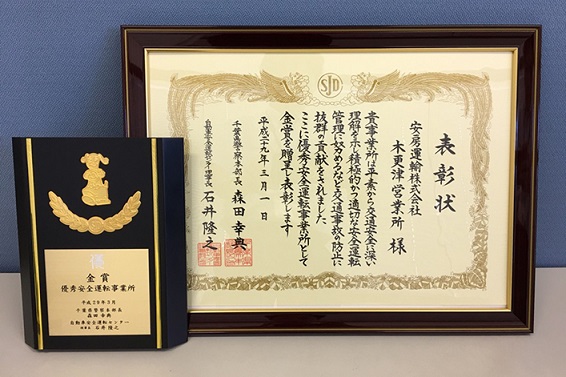 SJD
表彰状
安房運輸株式会社
木更津営業所 様
貴事業所は平素から交通安全に深い
理解を示し積極的かつ適切な安全運転
管理に努めるなど交通事故の防止に
抜群の貢献をされました
ここに優秀安全運転事業所として
金賞を贈呈し表彰します
平成二十九年三月一日
千葉県警察本部長 森田幸典
自動車安全運転センター理事長 石井隆之
金賞
優秀安全運転事業所
平成29年3月
千葉県警察本部長
森田幸典
自動車安全運転センター
理事長 石井隆之